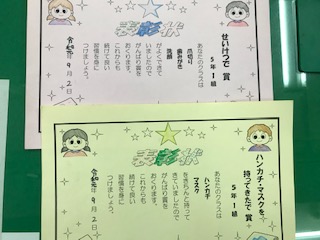 表彰状
せいけつで 賞
5年1組
あなたのクラスは
爪切り
歯みがき
洗顔
がよくできて
いましたので
がんばり賞を
おくります。
これからも
続けて良い
習慣を身に
つけましょう。
令和元年9月2日
表彰状
ハンカチ・マスクを、
持ってきたで賞
5年1組
あなたのクラスは
ハンカチ
マスク
をきちんと持って
きていましたので
がんばり賞を
おくります。
これからも
続けて良い
習慣を身に
つけましょう。
令和元年9月2日